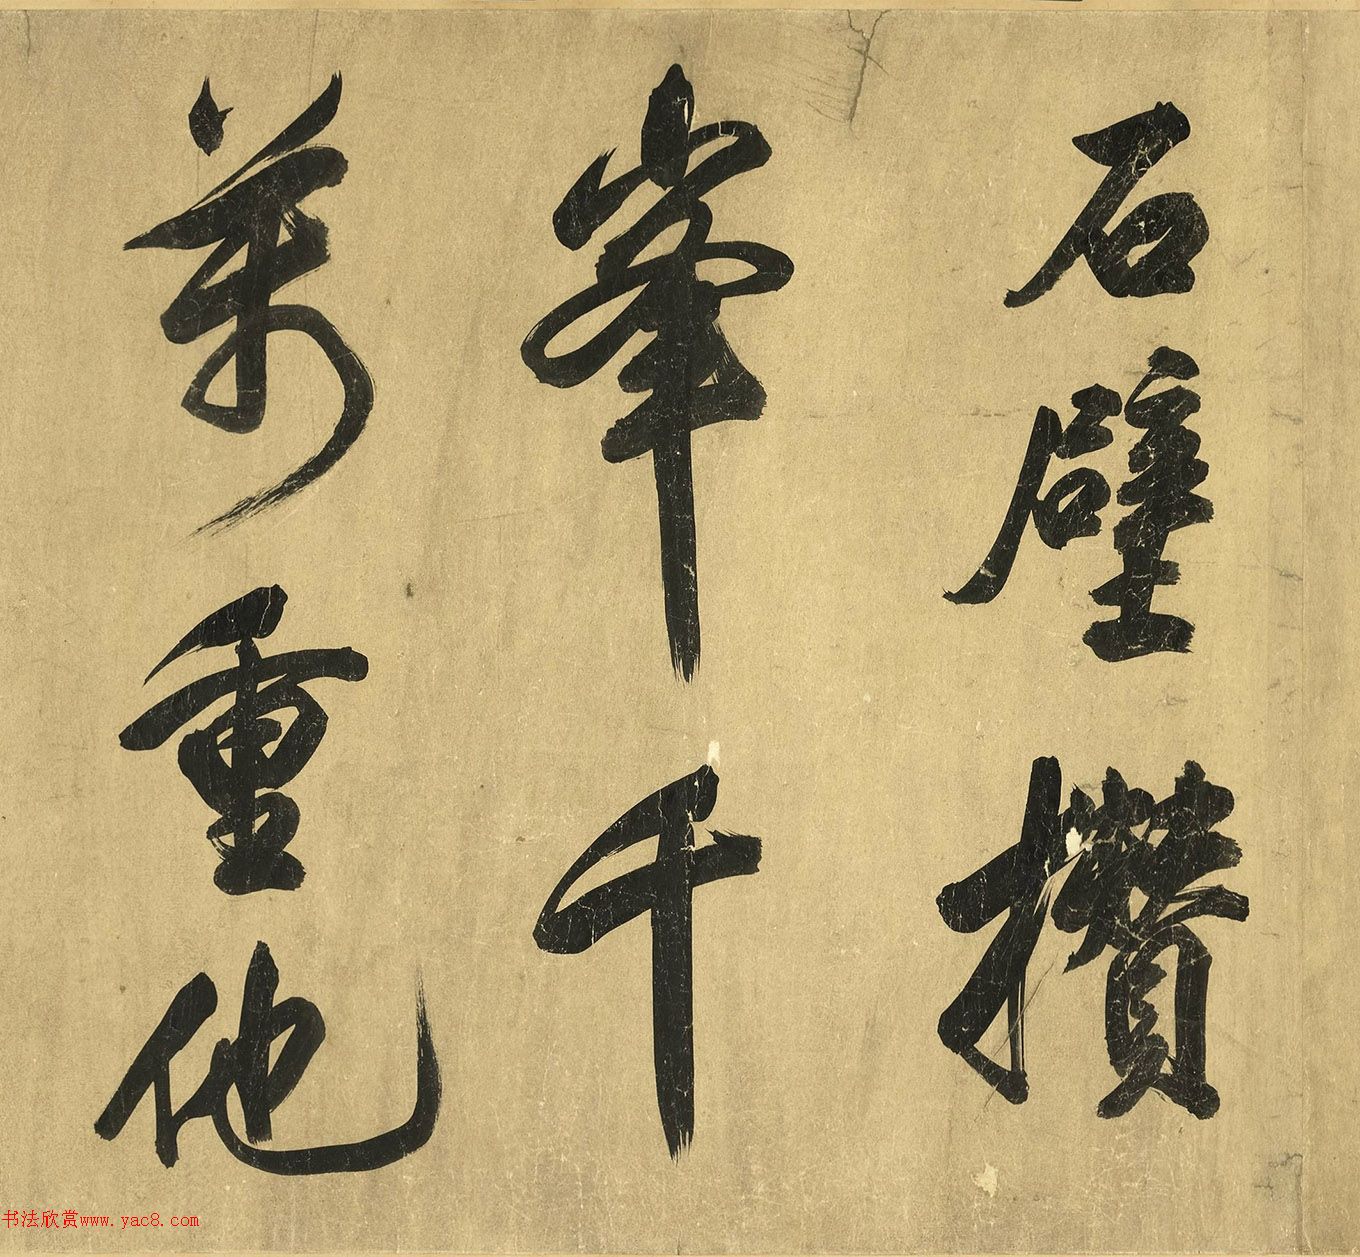 石壁攢
峯千
萬重他
书法欣赏www.yac8.com